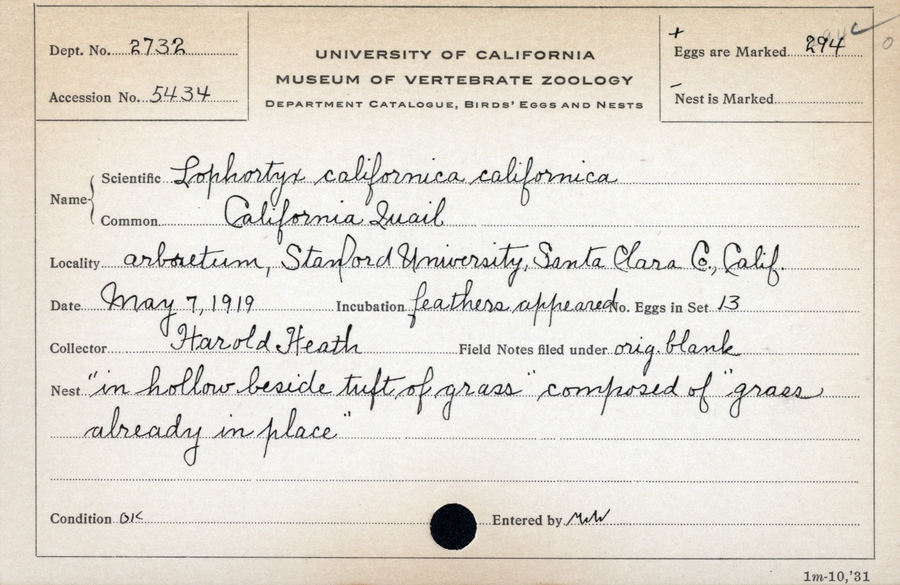 Dept. No. 2732
Accession No. 5434
UNIVERSITY OF CALIFORNIA
MUSEUM OF VERTEBRATE ZOOLOGY
DEPARTMENT CATALOGUE, BIRDS' EGGS AND NESTS
+
Eggs are Marked 294
-
Nest is Marked
Name
Scientific Lophortyx californica californica
Common California Quail
Locality arboretum, Stanford University, Santa Clara Co., Calif.
Date May 7, 1919 Incubation feathers appeared No. Eggs in Set 13
Collector Harold Heath Field Notes filed under orig. blank
Nest "in hollow beside tuft of grass" composed of "grass
already in place"
Condition OK Entered by
1m-10,'31